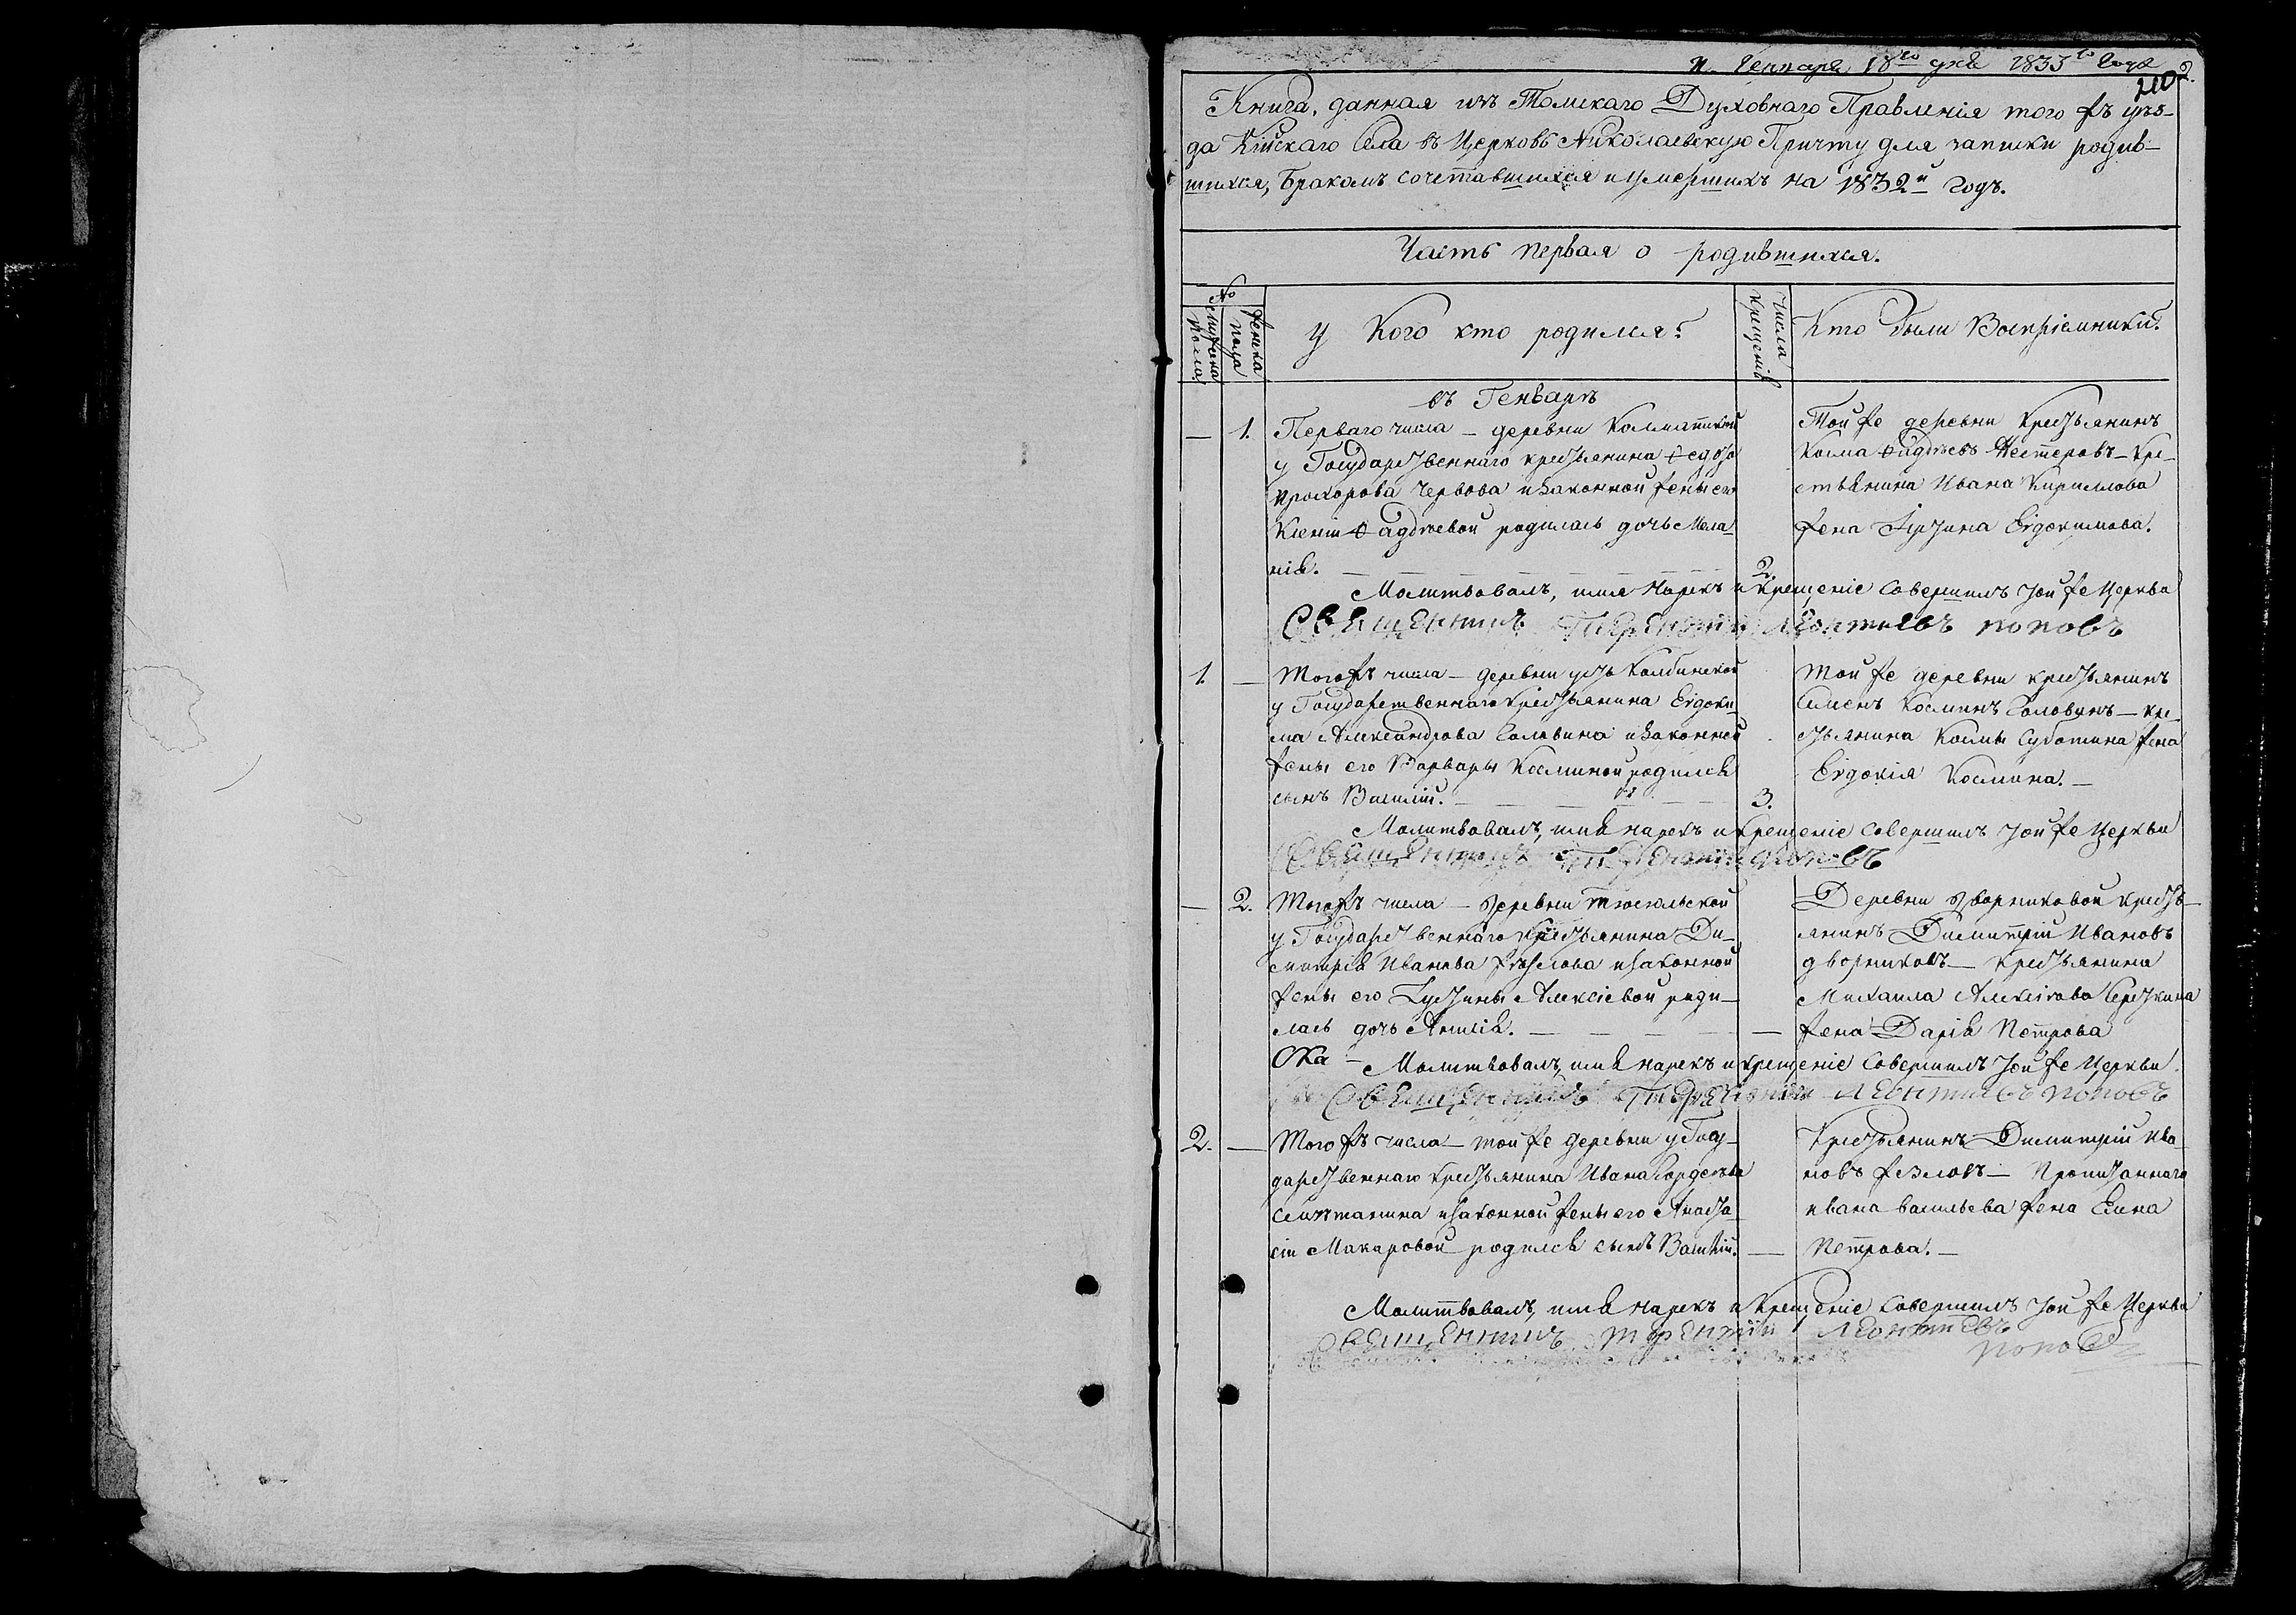 п. Генваря 18го дня 1833го года
210
Книга, данная изъ Томскаго Духовнаго Правленія того жъ уѣз-
да Кійскаго Села въ Церковь Николаевскую Причту для записки родив-
шихся, бракомъ сочетавшихся и умершихъ на 1832й годъ.
Часть первая о родившихся.
№
Мужска пола.
Женска пола
У Кого кто родился?
Числа крещенія
Кто были Воспріемники?
въ Генварѣ
— 1. Перваго числа — деревни
у Государственнаго крестьянина Ѳедора
Прохорова Червова и законной жены его
Ксеніи Ѳаддѣевой родилась дочь Мела-
нія. 2.
Той же деревни Крестьянинъ
Косма Ѳаддѣевъ Нестеровъ — кре-
стьянина Ивана Кирилова
жена Ирина Евдокимова.
Молитвовалъ, имя нарекъ и крещеніе совершилъ той же Церкви
Священникъ Терентій Леонтиевъ Поповъ
1. — Того жъ числа — деревни усть Колбинской
у Государственнаго крестьянина Евдоки-
ма Александрова Головина и законной
жены его Варвары Косминой родился
сынъ Василій. 3.
Той же деревни крестьянинъ
Симонъ Косминъ Головинъ — кре-
стьянина Космы Суботина жена
Евдокія Космина. —
Молитвовалъ, имя нарекъ и крещеніе совершилъ той же Церкви
Священникъ Терентій Поповъ
— 2. Того жъ числа — деревни Тюсюльской
у Государственнаго крестьянина Ди-
митрія Иванова и законной
жены его Іустины Алексіевой роди-
лась дочь Анисія. —
Деревни Дворниковой кресть-
янинъ Димитрій Ивановъ
Дворниковъ — крестьянина
Михаила
жена Дарія Петрова
Молитвовалъ, имя нарекъ и крещеніе совершилъ той же Церкви.
Священникъ Терентий Леонтиевъ Поповъ
2. — Того жъ числа — той же деревни у Госу-
дарственнаго крестьянина Ивана
и законной жены его Анаста-
сіи Макаровой родился сынъ Василій. —
Крестьянинъ Димитрій Ива-
новъ — Прописаннаго
Ивана Васильева жена Елена
Петрова. —
Молитвовалъ, имя нарекъ и крещеніе совершилъ той же Церкви
Священникъ Терентій Леонтиевъ
Поповъ